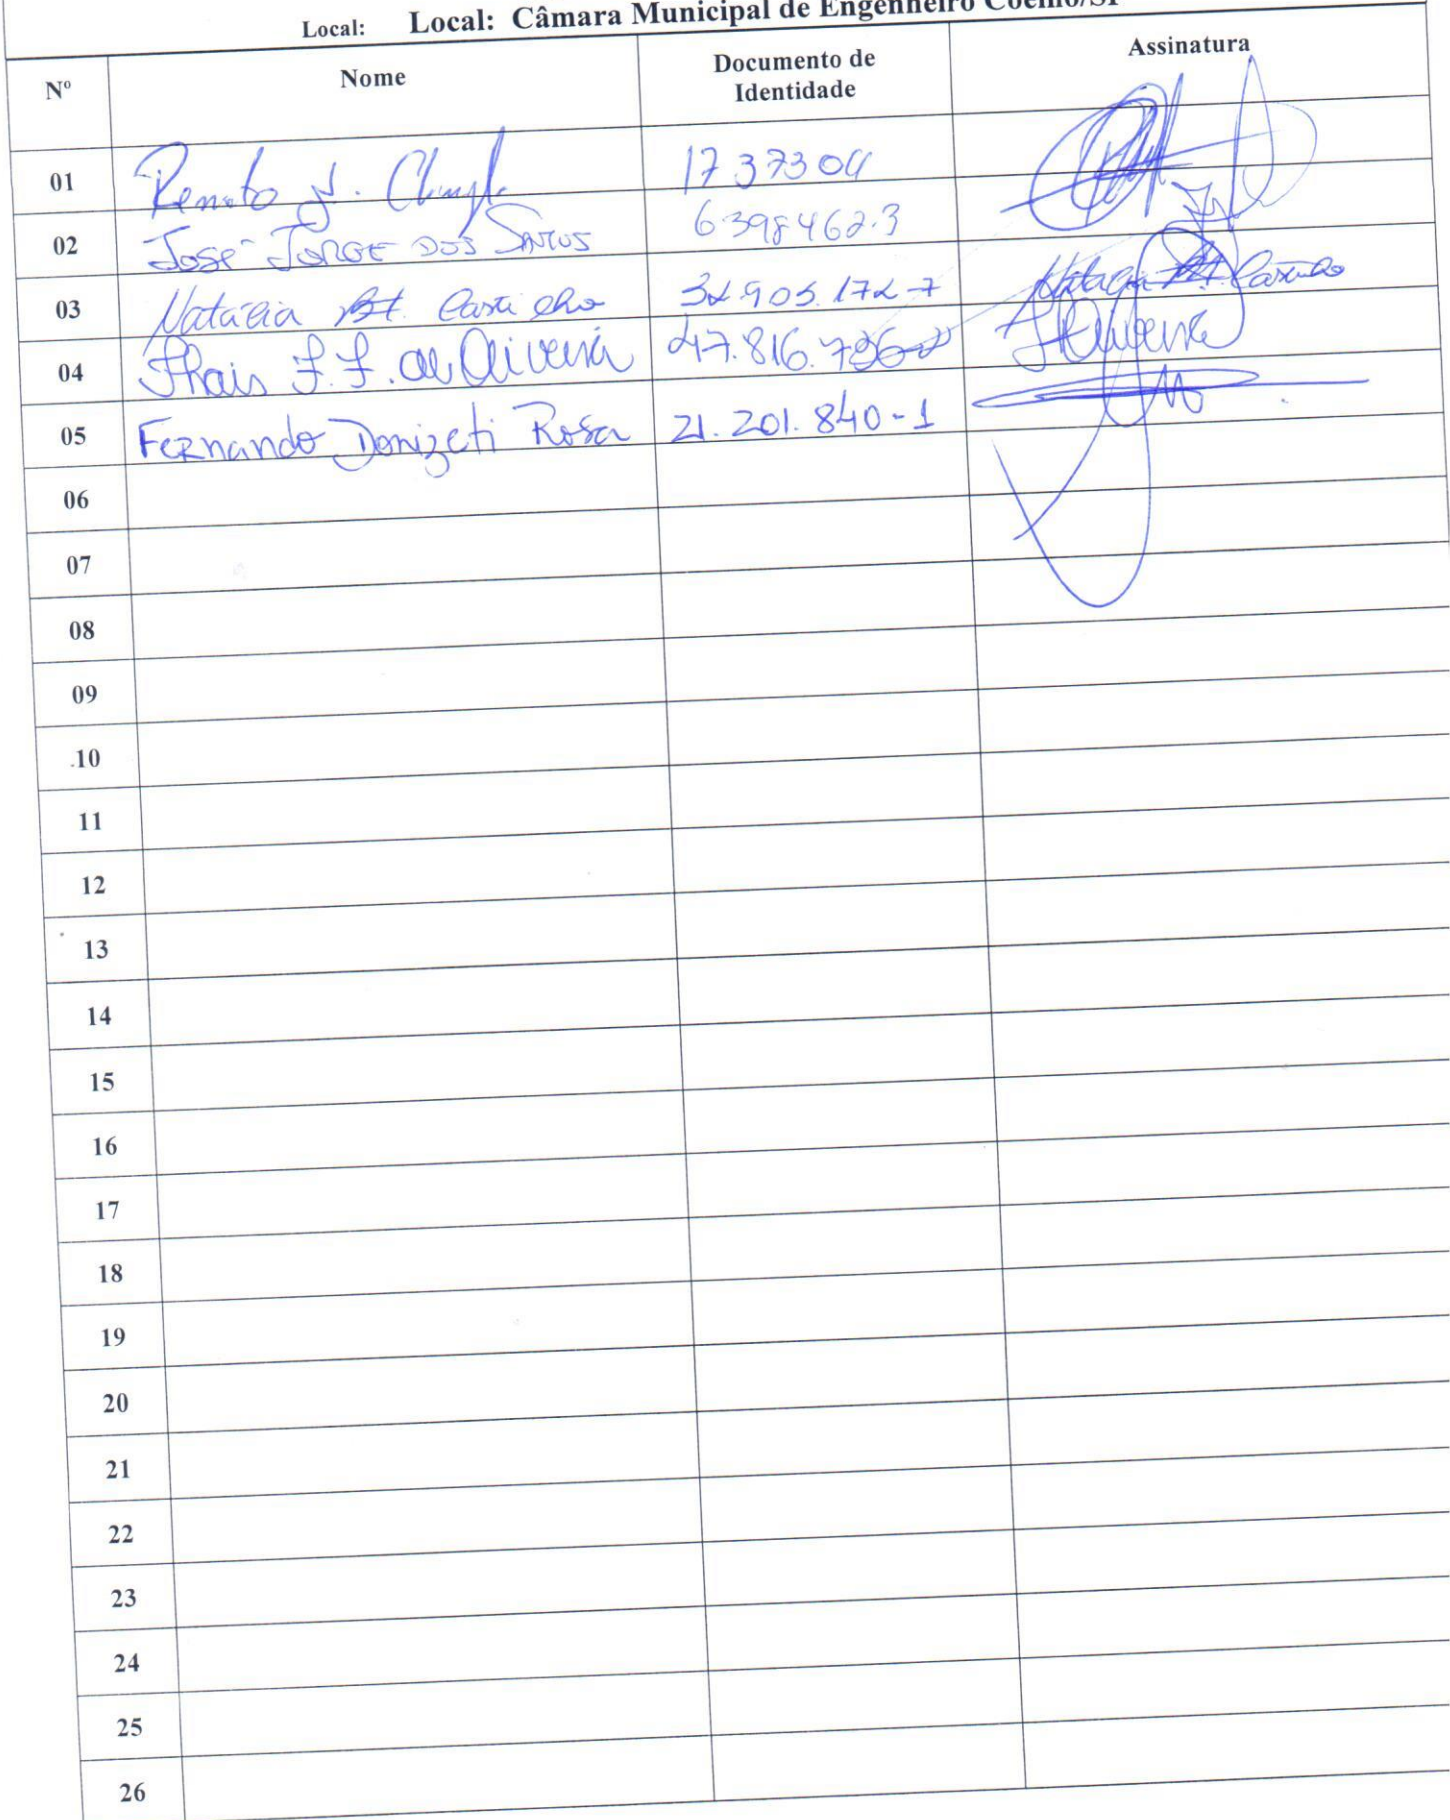 Local: Local: Câmara Municipal de Engenheiro Coelho/SP
Nº Nome Documento de Identidade Assinatura
01 Renato 1737304
02 José JORGE DOS SANTOS 6398462.3
03 Natália 32.905.172-7
04 Thais F. F. de Oliveira 47.816.796
05 Fernando Donizeti Rosa 21.201.840-1
06
07
08
09
10
11
12
13
14
15
16
17
18
19
20
21
22
23
24
25
26